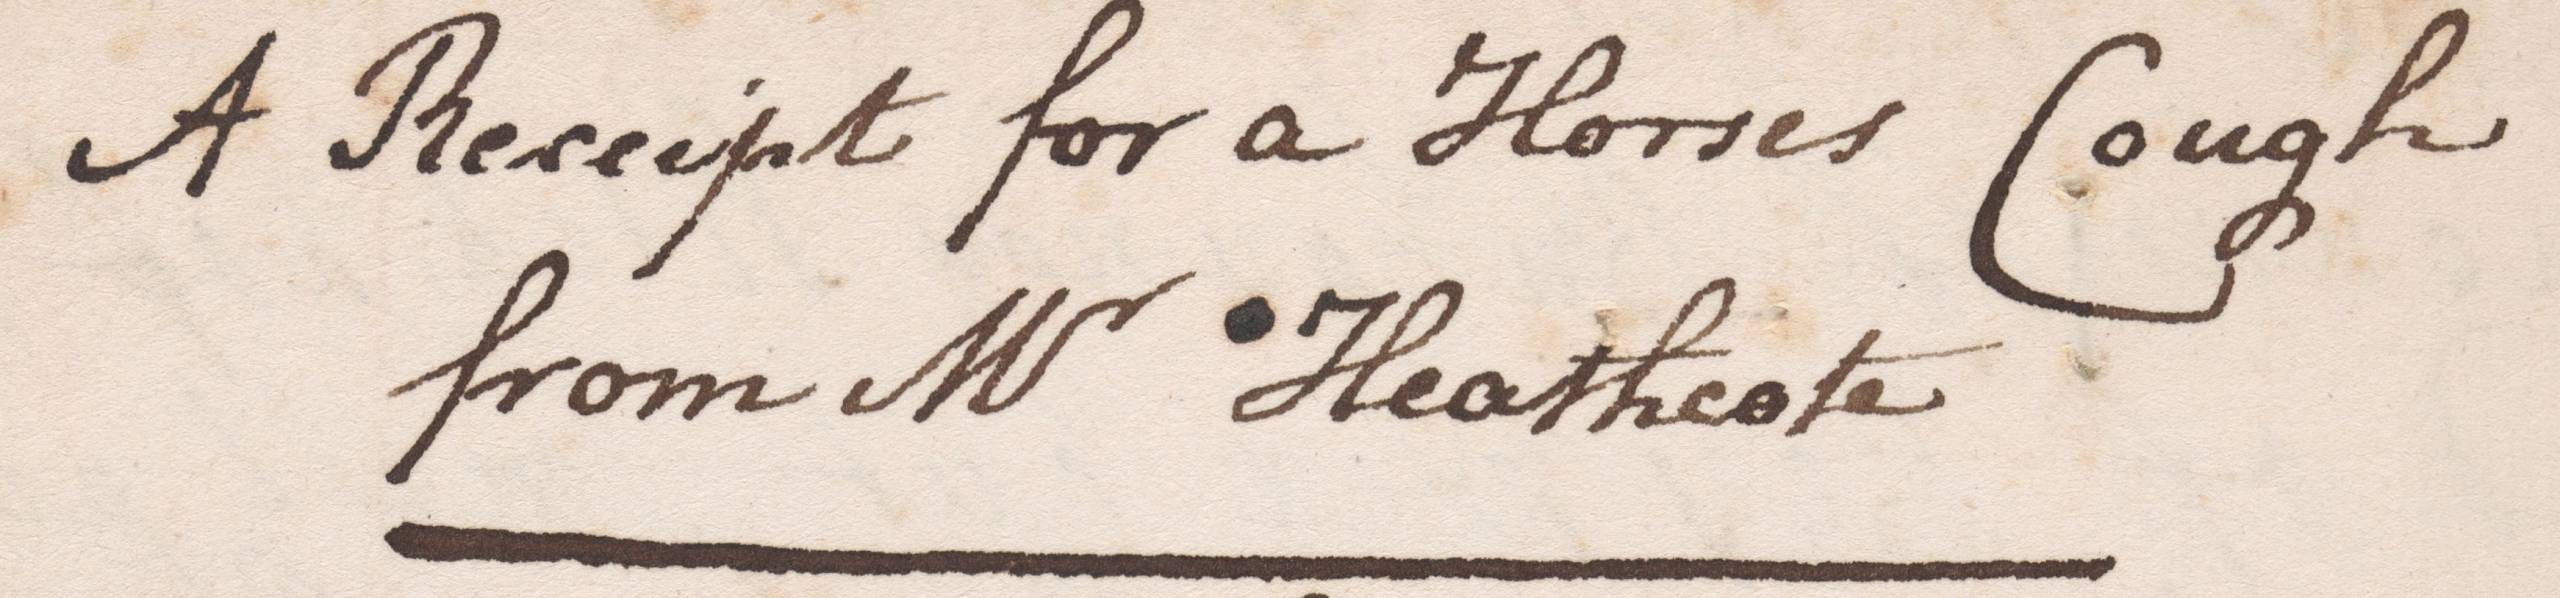 A Receipt for a Horses Cough
from Mr Heathcote